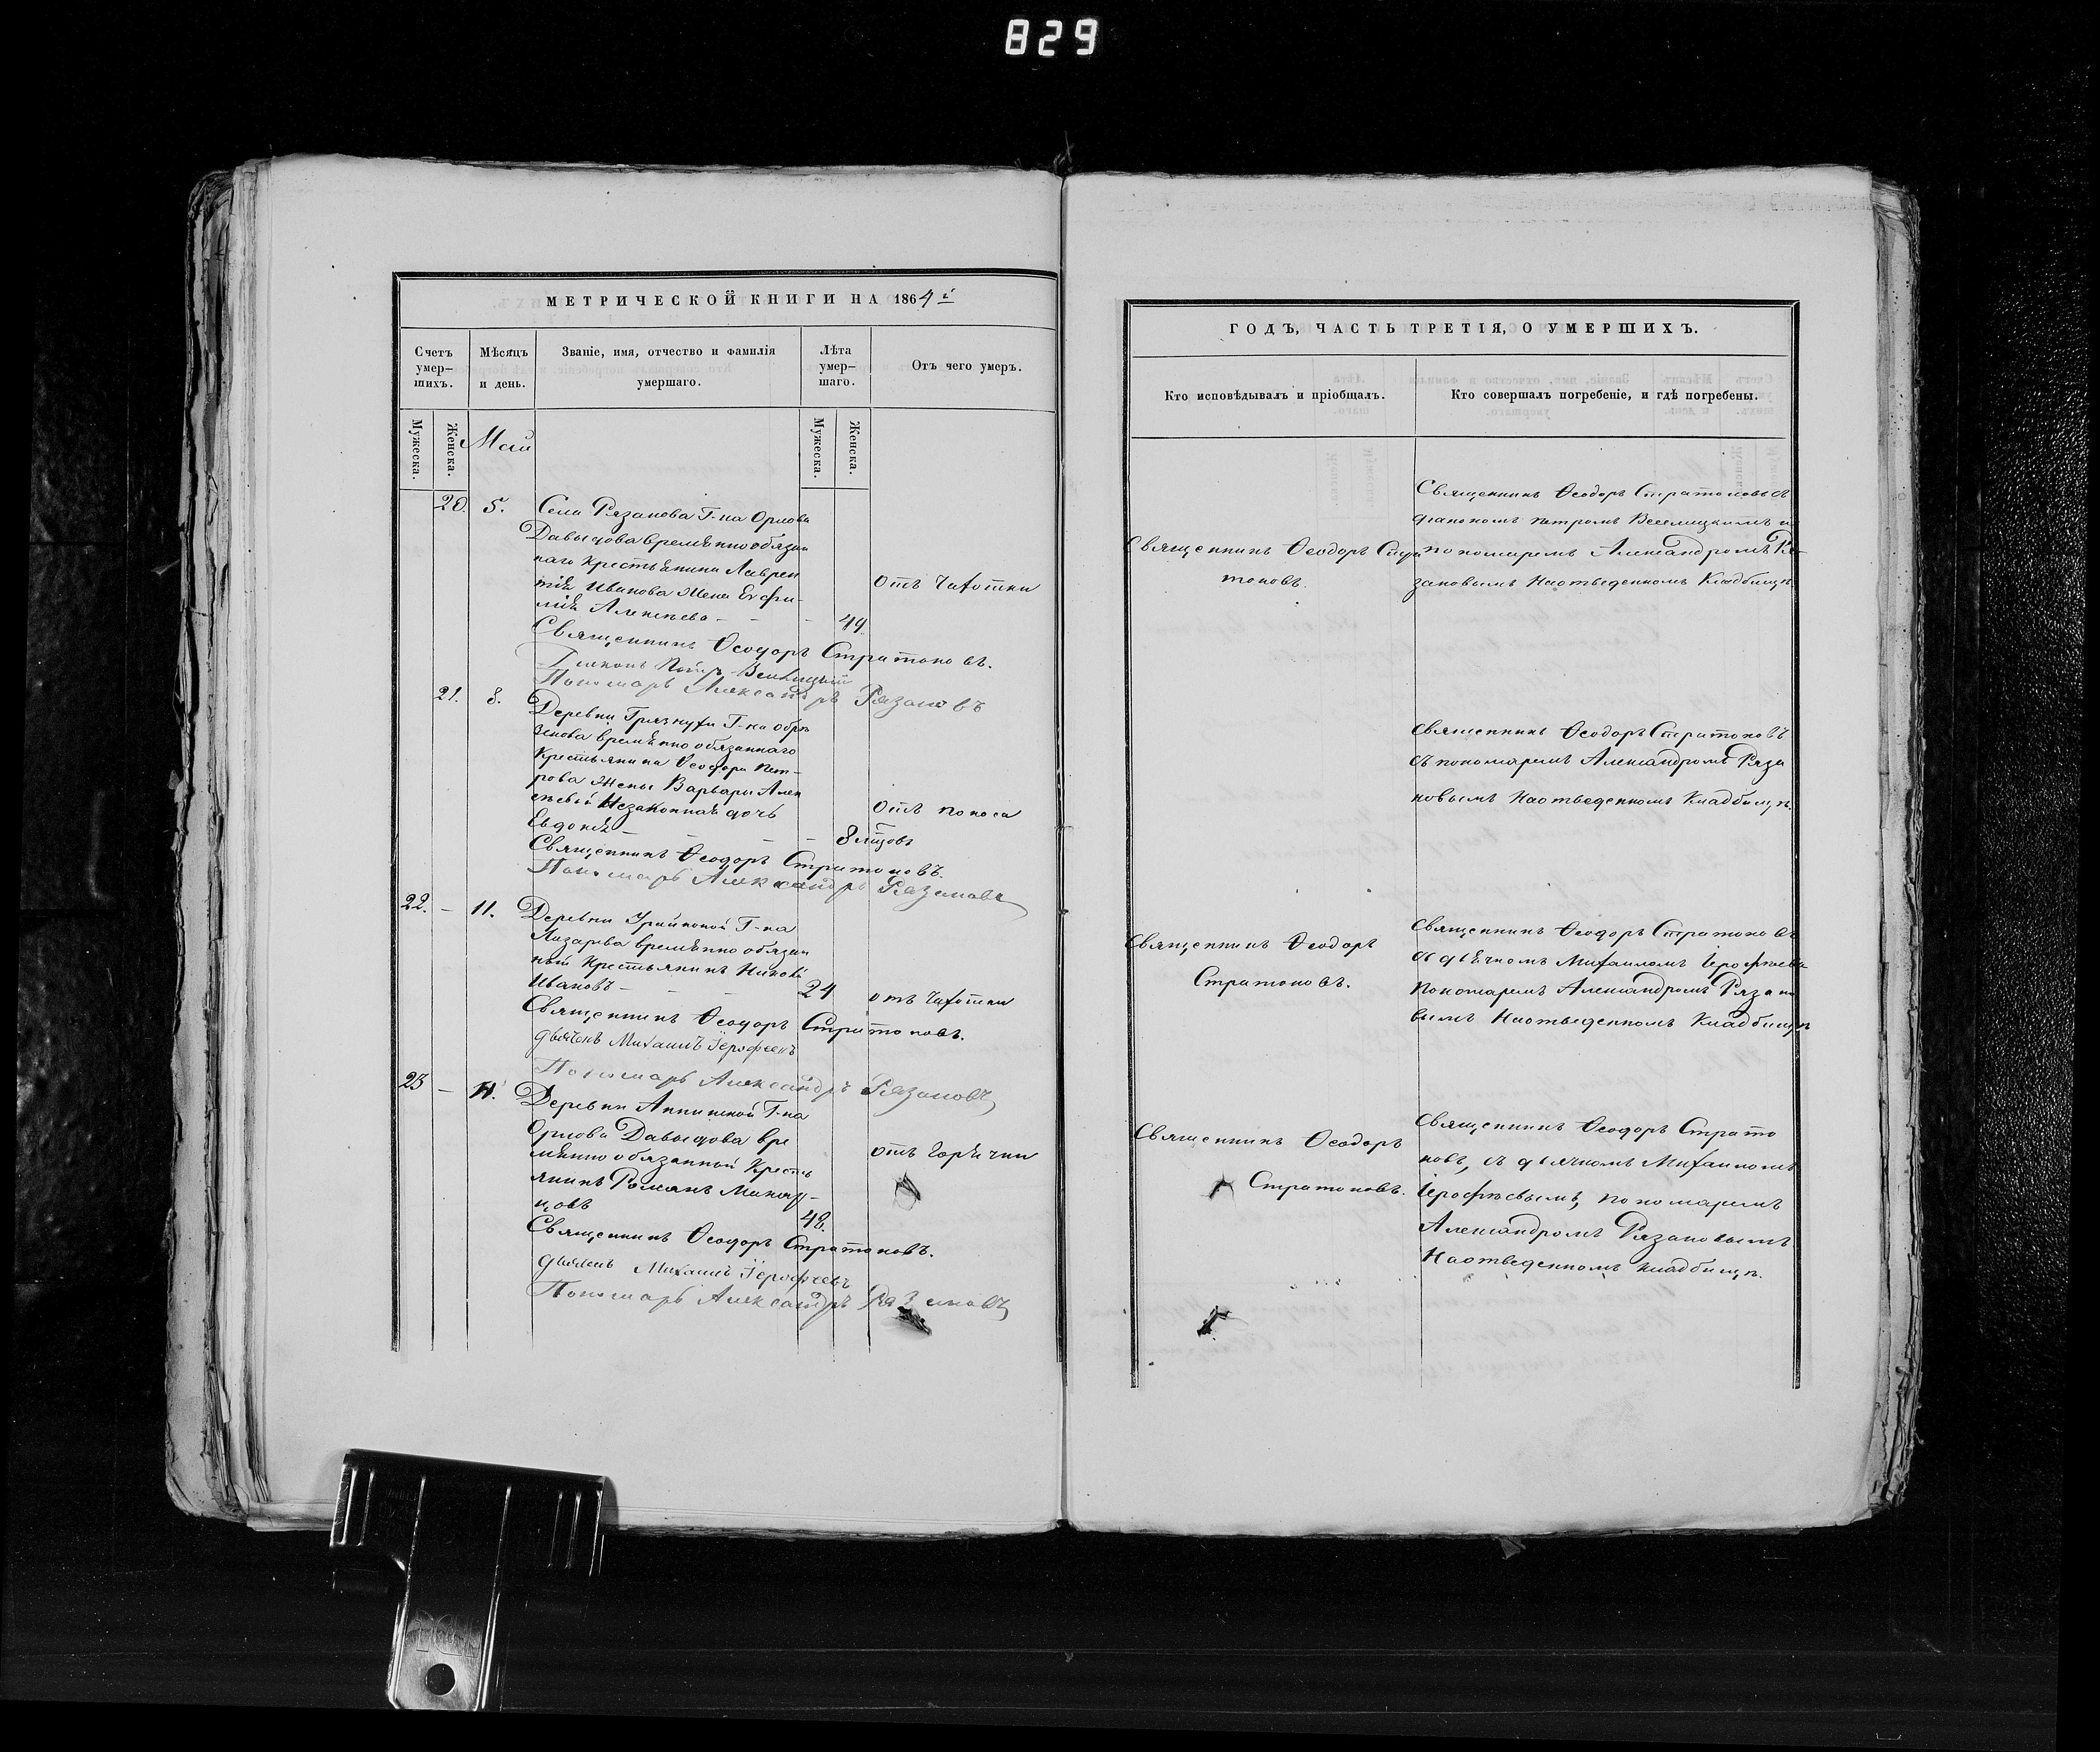 829
МЕТРИЧЕСКОЙ КНИГИ НА 1864й
Счетъ умер-шихъ.
Мѣсяцъ и день.
Званіе, имя, отчество и фамилія умершаго.
Лѣта умер-шаго.
Отъ чего умеръ.
Мужеска.
Женска.
Май
Мужеска.
Женска.
20. 5. Села Рязанова Г-на Орлова
Давыдова временно обязан
наго Крестьянина Лаврен
тія Иванова Жена Евфи-
мія Алексѣева - - - 49.
отъ Чахотки
Священникъ Ѳеодоръ Стратоновъ.
Діаконъ Петръ
Пономарь Александръ Рязановъ
21. 8. Деревни Грязнухи Г-на Обрѣ
зкова временно обязаннаго
Крестьянина Ѳеодора Пет-
рова Жены Варвары Алек
сѣевой Незаконная дочь
Евдокія - - - 8 мцовъ
отъ поноса
Священникъ Ѳеодоръ Стратоновъ.
Пономарь Александръ Рязановъ
22. - 11. Деревни Г-на
Лазарева временно обязан
ный Крестьянинъ
Ивановъ - - - 24
отъ Чахотки
Священникъ Ѳеодоръ Стратоновъ.
дьячекъ Михаилъ Іерофеевъ
Пономарь Александръ Рязановъ
23 - 11. Деревни Аннинской Г-на
Орлова Давыдова вре
менно обязанный Кресть
янинъ Романъ
48.
отъ Горячки
Священникъ Ѳеодоръ Стратоновъ.
дьячекъ Михаилъ Іерофеевъ
Пономарь Александръ Рязановъ
ГОДЪ, ЧАСТЬ ТРЕТІЯ, О УМЕРШИХЪ.
Кто исповѣдывалъ и пріобщалъ.
Кто совершалъ погребеніе, и гдѣ погребены.
Священникъ Ѳеодоръ Стра
тоновъ.
Священникъ Ѳеодоръ Стратоновъ съ
діакономъ Петромъ и
пономаремъ Александромъ Ря-
зановымъ На отведенномъ Кладбищѣ.
Священникъ Ѳеодоръ Стратоновъ
съ пономаремъ Александромъ Ряза
новымъ На отведенномъ Кладбищѣ.
Священникъ Ѳеодоръ
Стратоновъ.
Священникъ Ѳеодоръ Стратоновъ
съ дьячкомъ Михаиломъ Іерофѣевы
Пономаремъ Александромъ Рязано
вымъ На отведенномъ Кладбищѣ
Священникъ Ѳеодоръ
Стратоновъ.
Священникъ Ѳеодоръ Страто
новъ, съ дьячкомъ Михаиломъ
Іерофѣевымъ, пономаремъ
Александромъ Рязановымъ
На отведенномъ кладбищѣ.